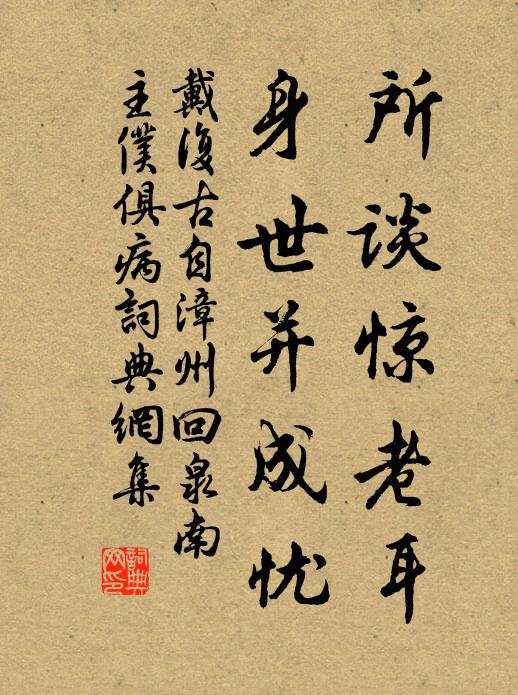 所谈惊老耳
身世并成忧
戴復古自漳州回泉南
主僕俱病詞典網集
詞典
网印